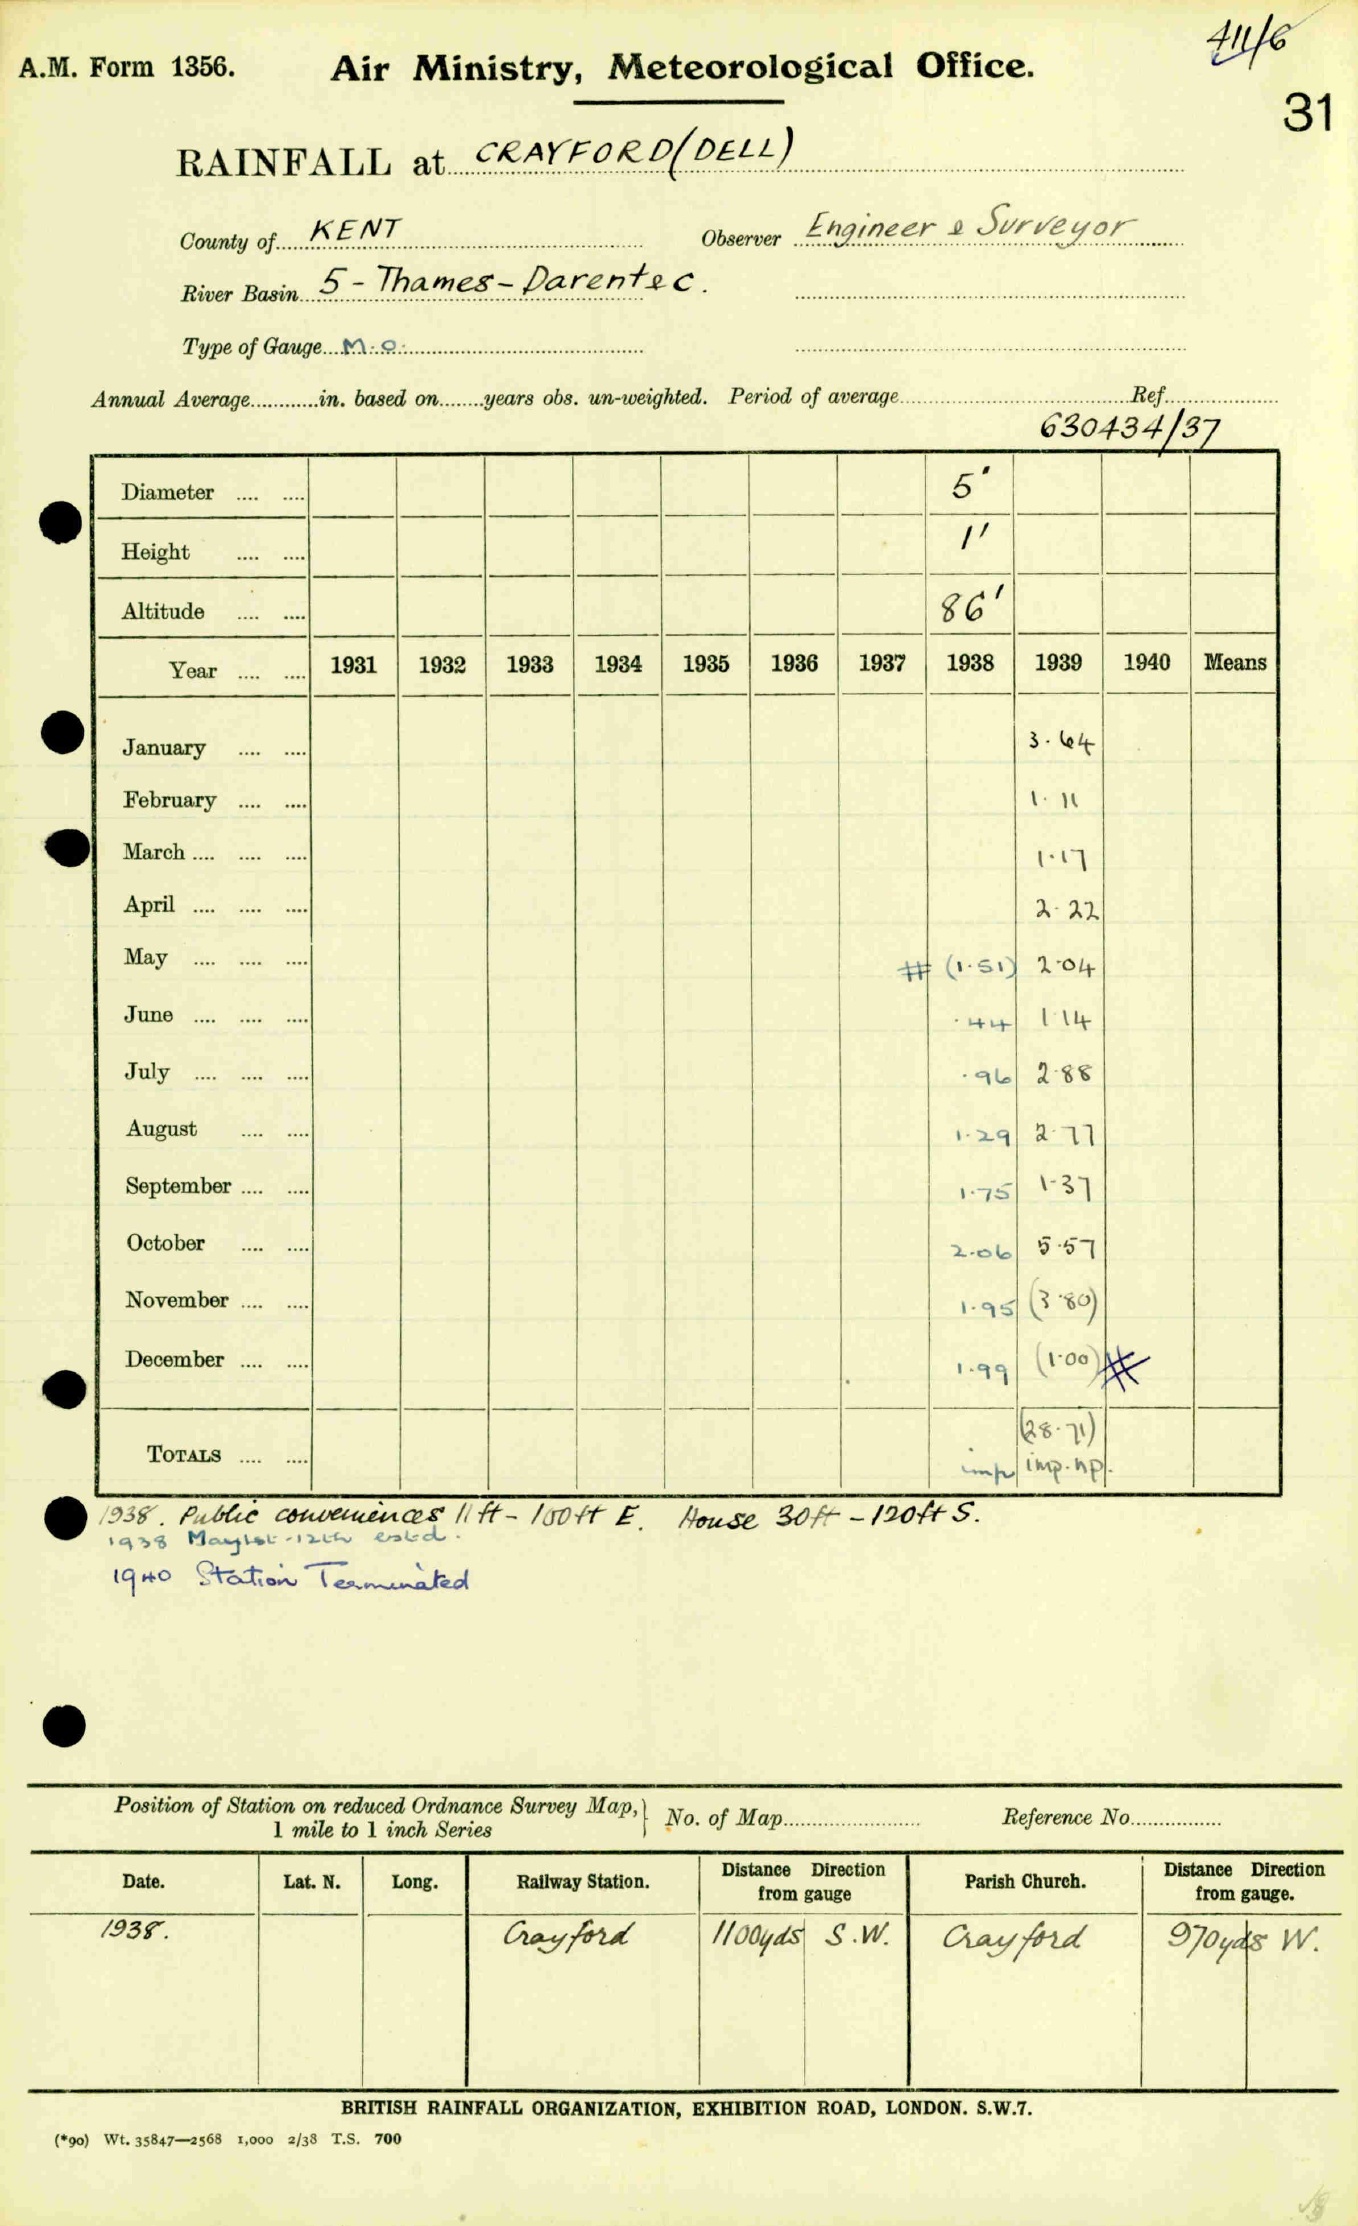 411/6
A.M. Form 1356. Air Ministry, Meteorological Office.
31
RAINFALL at CRAYFORD (DELL)
County of KENT Observer Engineer & Surveyor
River Basin 5 - Thames - Darent &c.
Type of Gauge M.O.
Annual Average............in. based on........years obs. un-weighted. Period of average........................Ref................
630434/37
Diameter .... .... 5"
Height .... .... 1'
Altitude .... .... 86'
Year .... .... 1931 1932 1933 1934 1935 1936 1937 1938 1939 1940 Means
January .... .... 3.64
February .... .... 1.11
March .... .... .... 1.17
April .... .... .... 2.22
May .... .... .... # (1.51) 2.04
June .... .... .... .44 1.14
July .... .... .... .96 2.88
August .... .... 1.29 2.77
September .... .... 1.75 1.37
October .... .... 2.06 5.57
November .... .... 1.95 (3.80)
December .... .... 1.99 (1.00) #
(28.71)
TOTALS .... .... imp imp. np.
1938. Public conveniences 11ft - 100ft E. House 30ft - 120ft S.
1938 May 1st - 12th estd.
1940 Station Terminated
Position of Station on reduced Ordnance Survey Map, 1 mile to 1 inch Series } No. of Map........................ Reference No................
Date. Lat. N. Long. Railway Station. Distance Direction from gauge Parish Church. Distance Direction from gauge.
1938. Crayford 1100yds S.W. Crayford 970yds W.
BRITISH RAINFALL ORGANIZATION, EXHIBITION ROAD, LONDON. S.W.7.
(*90) Wt. 35847—2568 1,000 2/38 T.S. 700